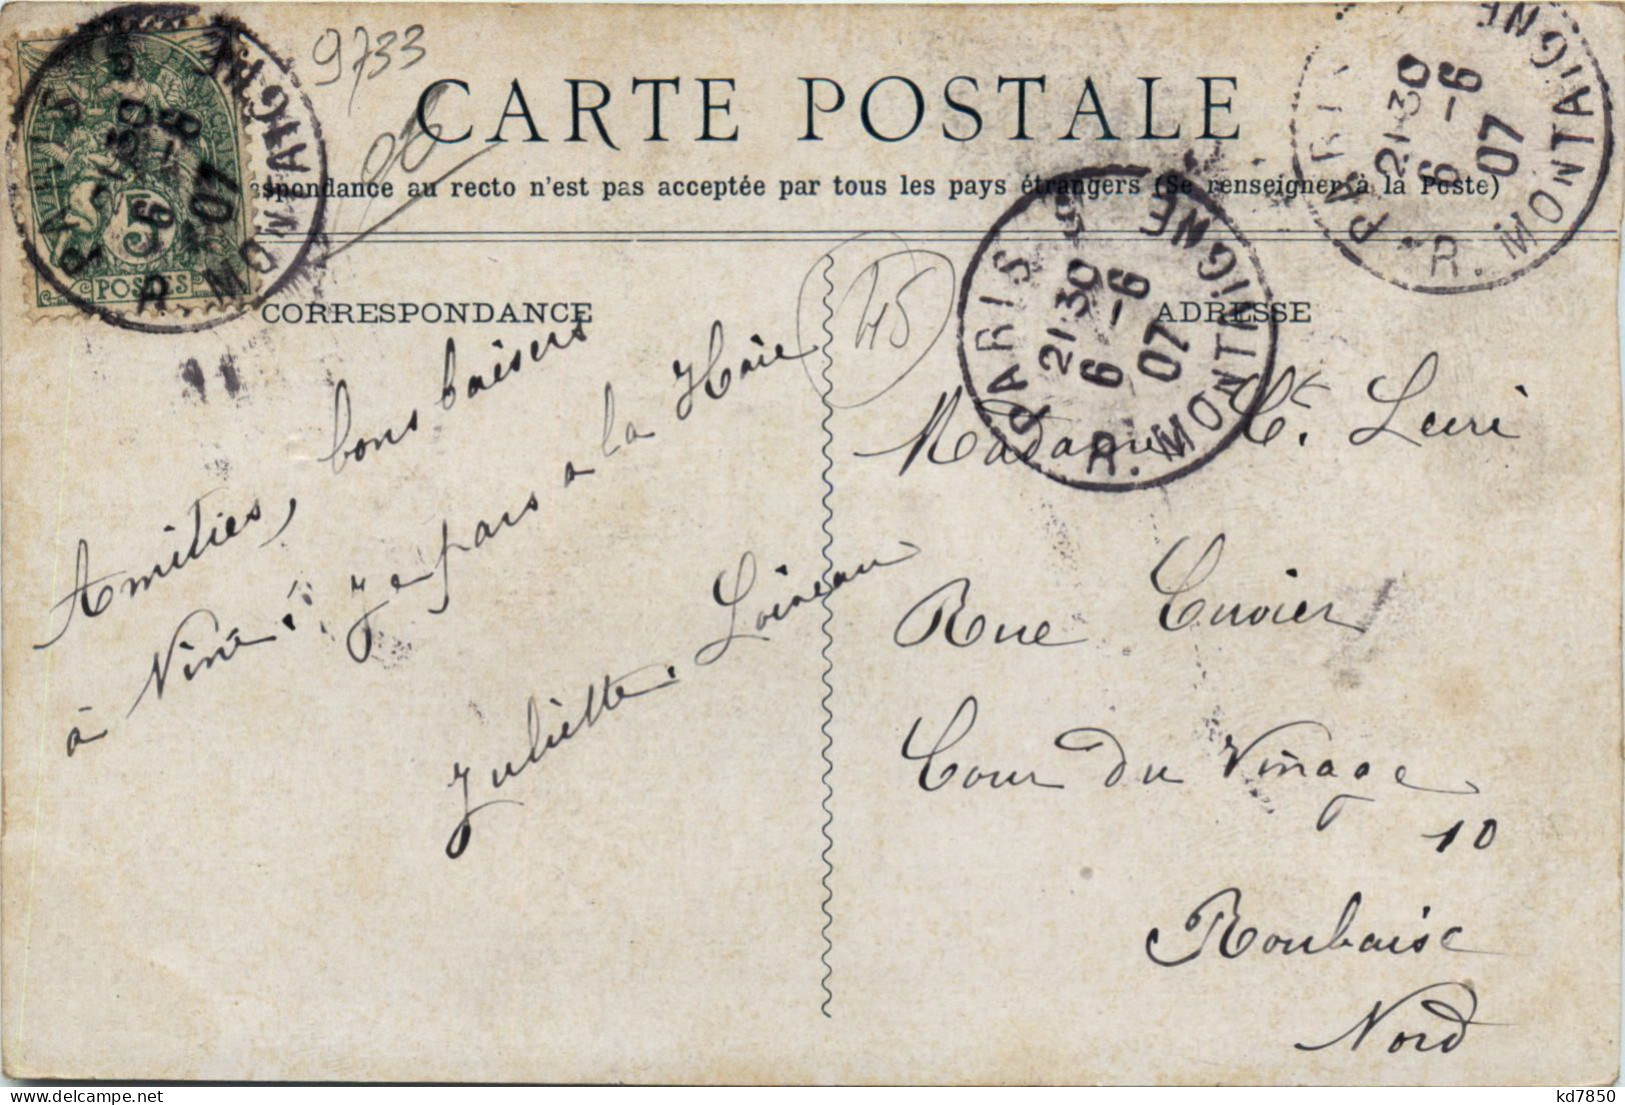 9733
CARTE POSTALE
spondance au recto n'est pas acceptée par tous les pays étrangers (Se renseigner à la Poste)
5
POSTES
PARIS 5
21 30
6 - 6
07
R. MONTAIGNE
PARIS
21 30
6 - 6
07
R. MONTAIGNE
PARIS
21 30
6 - 6
07
R. MONTAIGNE
CORRESPONDANCE
ADRESSE
45
Amitiés, bons baisers
à Je pars a la Haie
Juliette. Loineau
Madame Ct. Leuri
Rue Cuvier
Cour du Vinage
10
Roubaix
Nord
kd7850